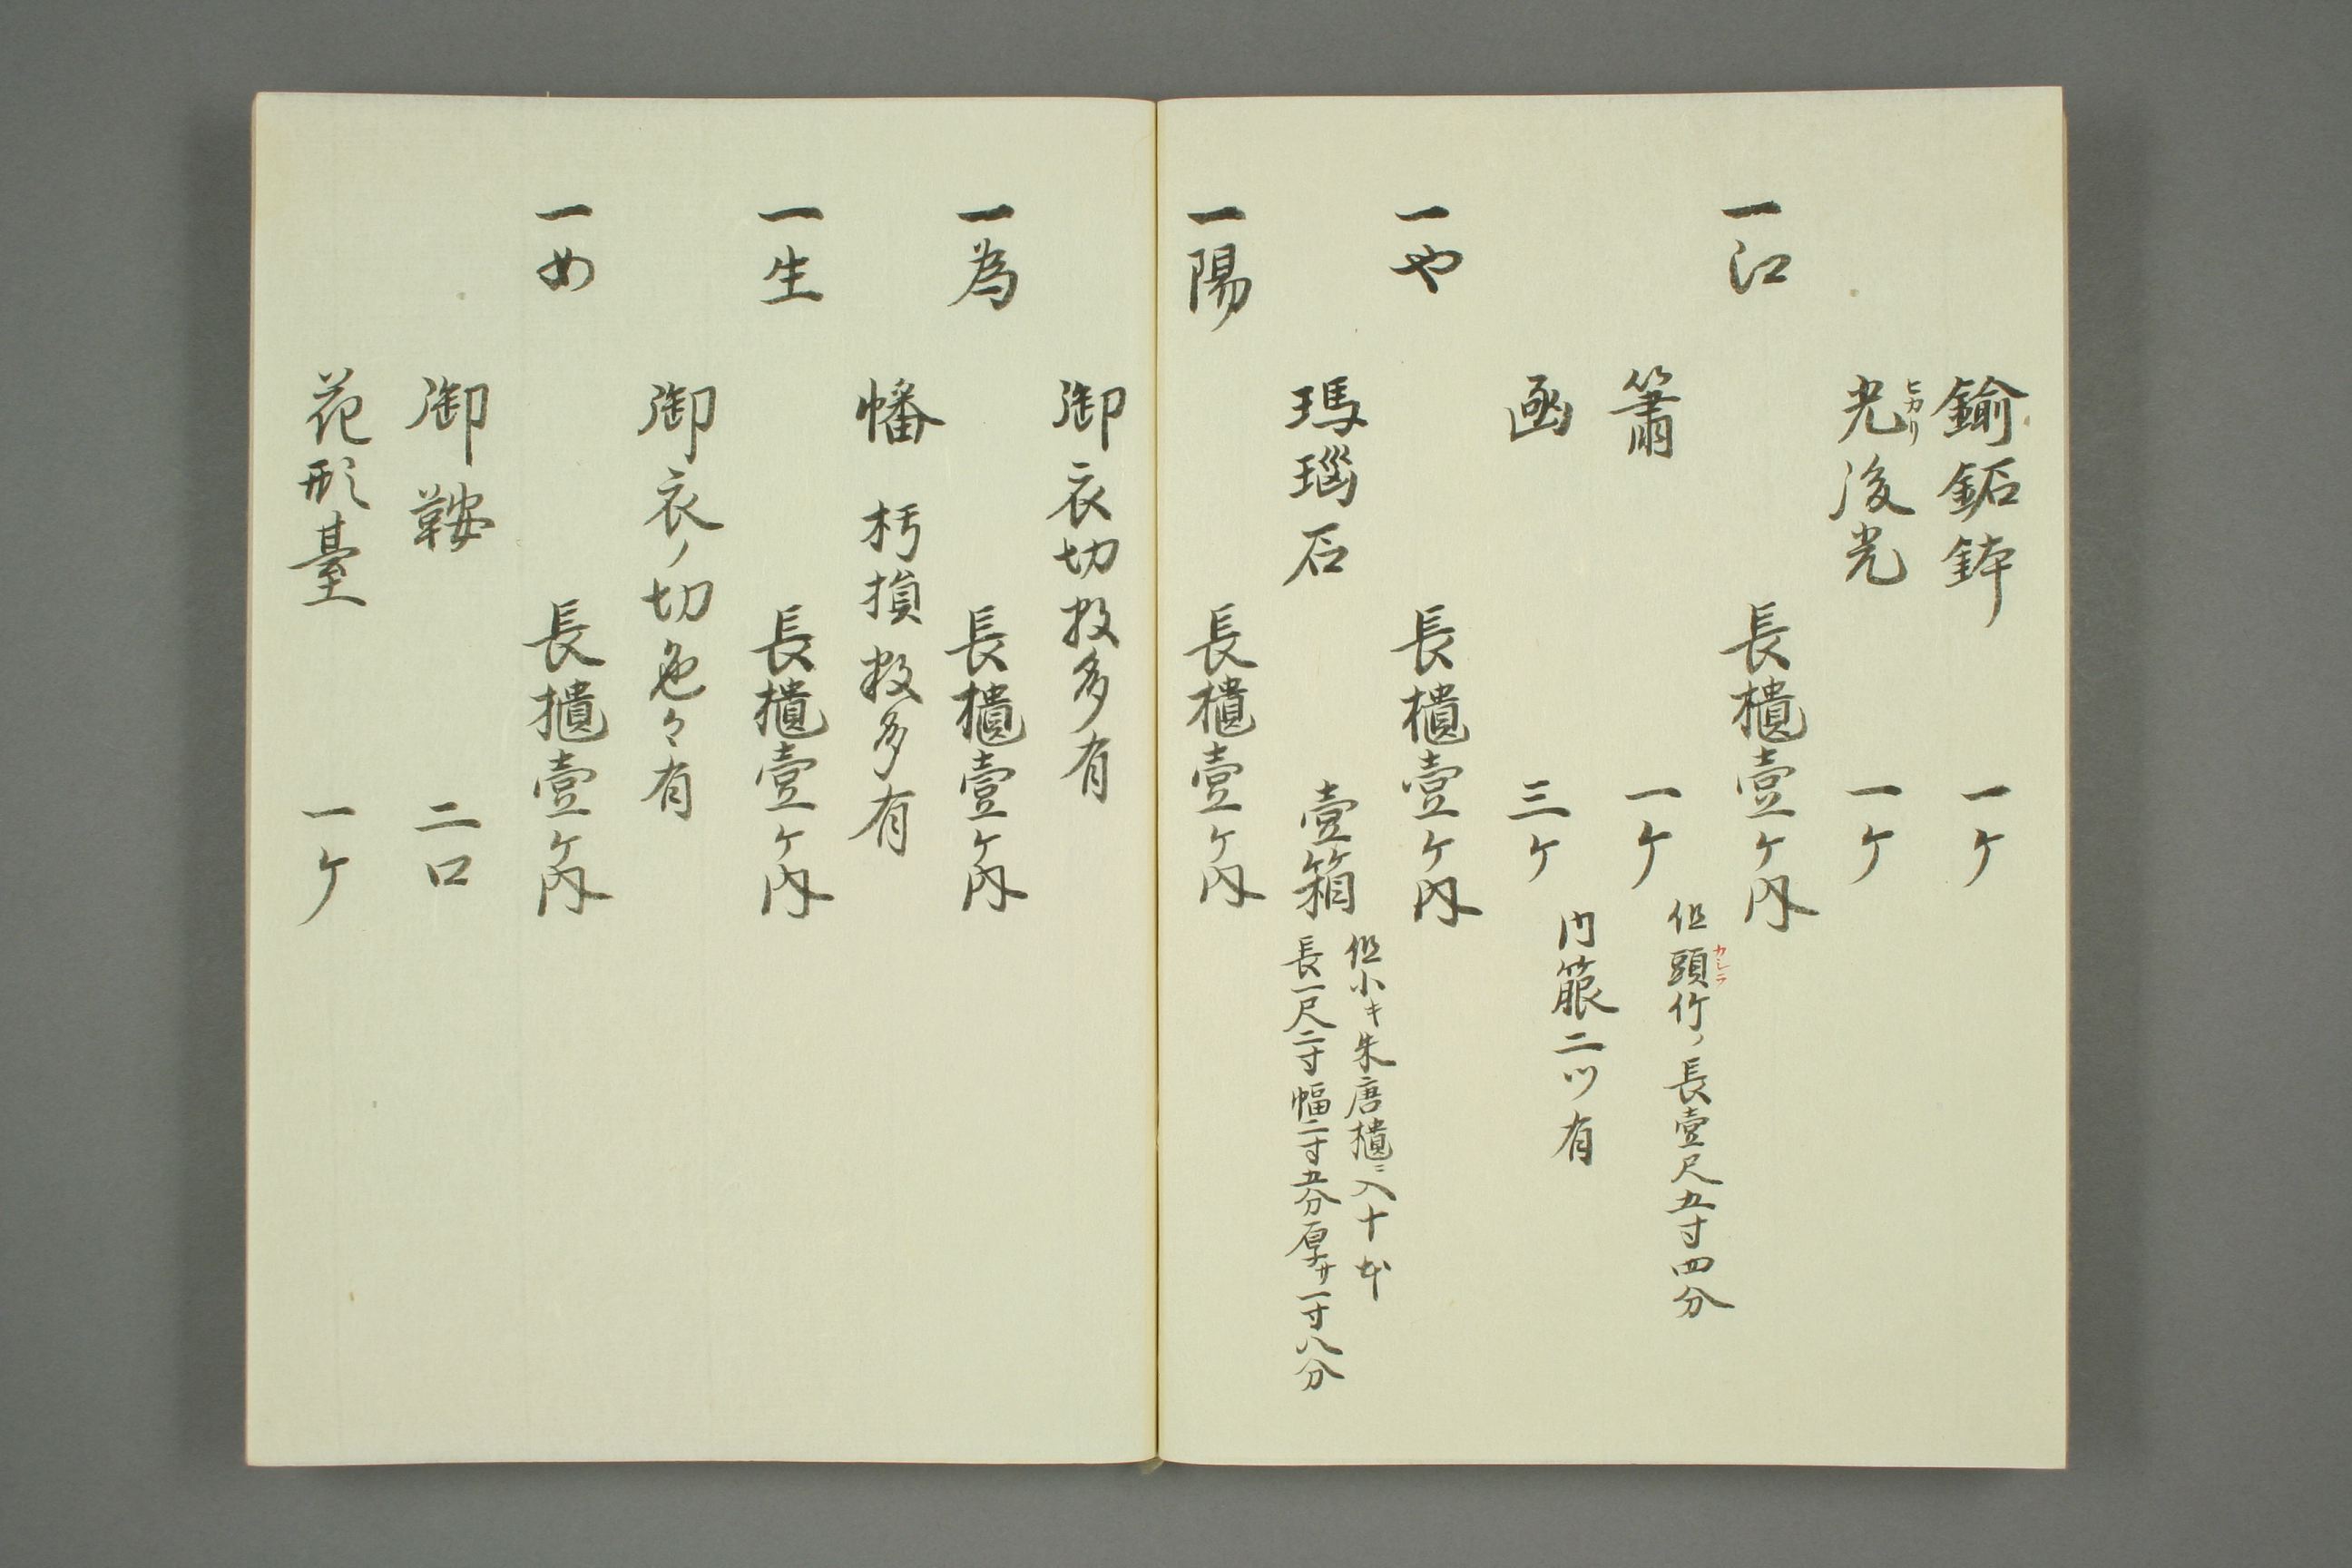 鍮鉐鉢 一ケ
光後光 一ケ
ヒカリ
一江 長櫃壹ケ内
簫 一ケ 但頭竹ノ長壹尺五寸四分
カシラ
凾 三ケ 内箙二ツ有
一や 長櫃壹ケ内
瑪瑙石 壹箱 但小キ朱唐櫃ニ入十本
長一尺二寸幅二寸五分厚サ一寸八分
一陽 長櫃壹ケ内
御衣切数多有
一為 長櫃壹ケ内
幡 朽損数多有
一生 長櫃壹ケ内
御衣ノ切色々有
一め 長櫃壹ケ内
御鞍 二口
花形臺 一ケ